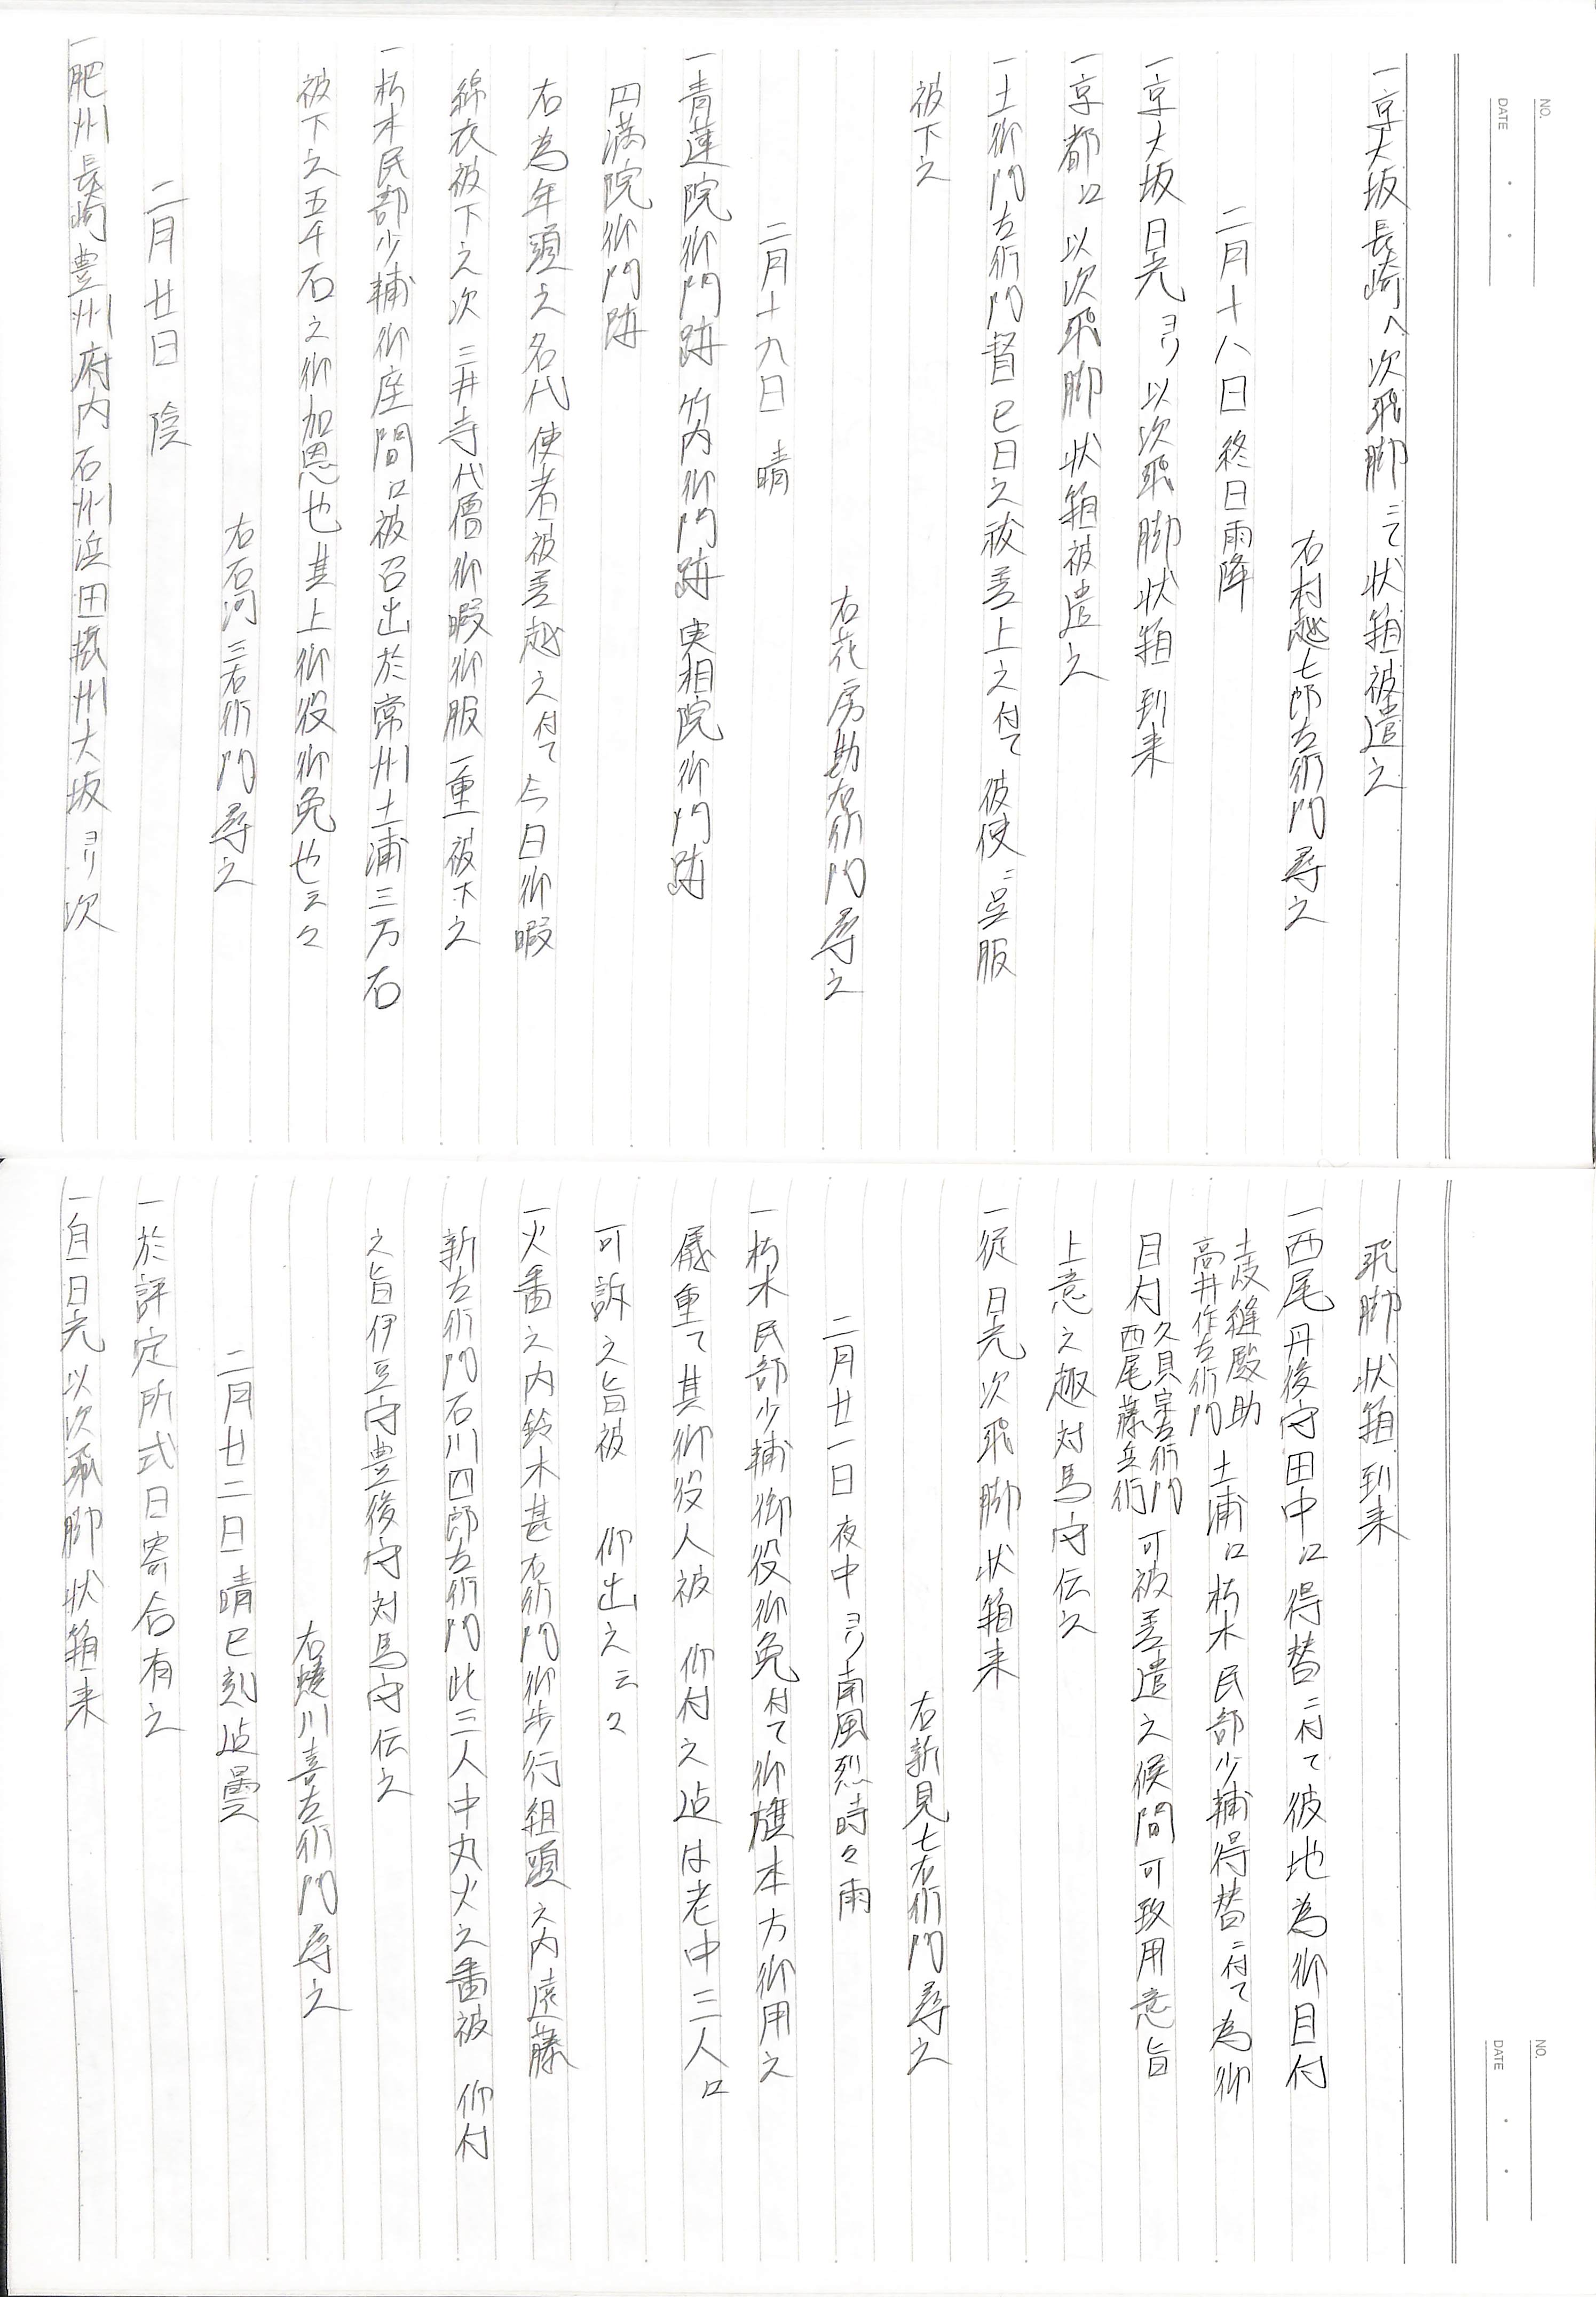 NO.
DATE
一京大坂長崎へ次飛脚ニて状箱被遣之
右村越七郎左衛門尋之
二月十八日終日雨降
一京大坂日光ヨリ以次飛脚状箱到来
一京都江以次飛脚状箱被遣之
一土御門左衛門督巳日之祓差上之付て彼使ニ呉服
被下之
右花房勘右衛門尋之
二月十九日 晴
一青蓮院御門跡 竹内御門跡 実相院御門跡
円満院御門跡
右為年頭之名代使者被差越之付て今日御暇
綿衣被下之次三井寺代僧御暇御服一重被下之
一朽木民部少輔御座間江被召出於常州土浦三万石
被下之五千石之御加恩也其上御役御免也云々
右石河三右衛門尋之
二月廿日 陰
一肥州長崎豊州府内石州浜田摂州大坂ヨリ次
NO.
DATE
飛脚状箱到来
一西尾丹後守田中江得替ニ付て彼地為御目付
土岐縫殿助
高井作左衛門
土浦江朽木民部少輔得替ニ付て為御
目付
久貝宗左衛門
西尾藤兵衛
可被差遣之候間可致用意旨
上意之趣対馬守伝之
一従日光次飛脚状箱来
右新見七右衛門尋之
二月廿一日夜中ヨリ南風烈時々雨
一朽木民部少輔御役御免付て御旗本方御用之
儀重て其御役人被 仰付之迠は老中三人江
可訴之旨被 仰出之云々
一火番之内鈴木甚右衛門御歩行組頭之内遠藤
新左衛門石川四郎左衛門此三人中丸火之番被 仰付
之旨伊豆守豊後守対馬守伝之
右蜷川喜左衛門尋之
二月廿二日晴巳刻迠曇
一於評定所式日寄合有之
一自日光以次飛脚状箱来